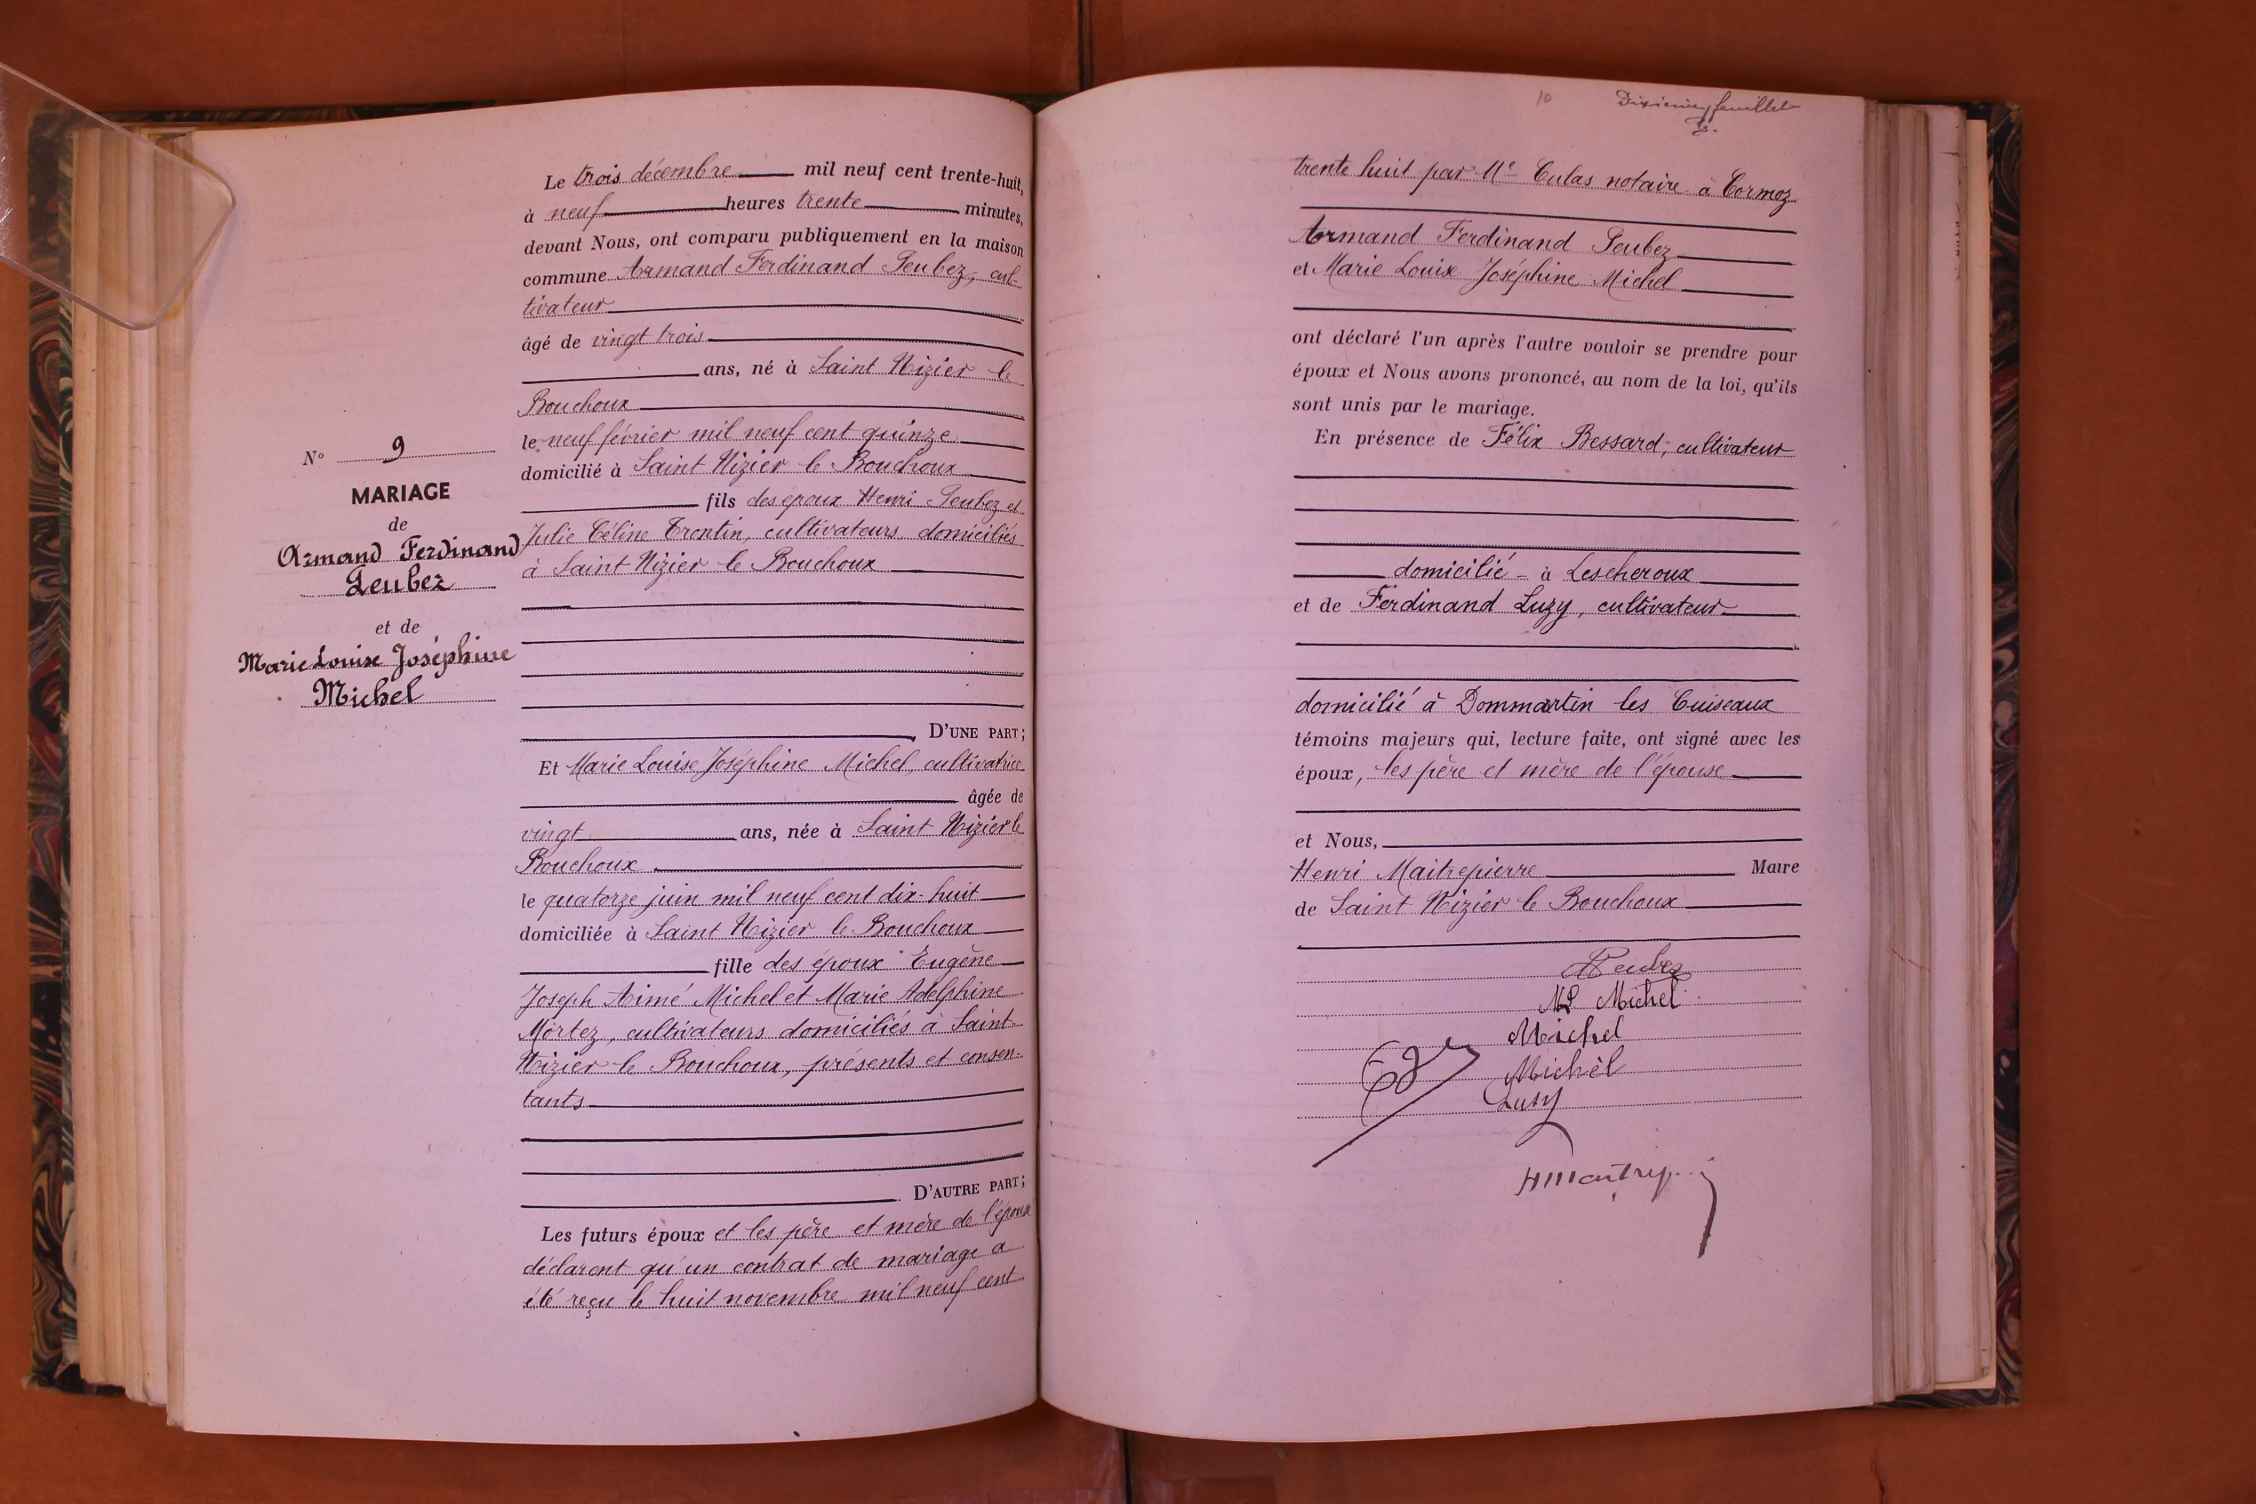 Le trois décembre mil neuf cent trente-huit,
à neuf heures trente minutes,
devant Nous, ont comparu publiquement en la maison
commune Armand Ferdinand Peubez, cul-
tivateur
âgé de vingt trois
ans, né à Saint Nizier le
Bouchoux
le neuf février mil neuf cent quinze
domicilié à Saint Nizier le Bouchoux
fils des époux Henri Peubez et
Julie Céline Trontin, cultivateurs domiciliés
à Saint Nizier le Bouchoux
N° 9
MARIAGE
de
Armand Ferdinand
Peubez
et de
Marie Louise Joséphine
Michel
D'UNE PART;
Et Marie Louise Joséphine Michel, cultivatrice
âgée de
vingt ans, née à Saint Nizier le
Bouchoux
le quatorze juin mil neuf cent dix-huit
domiciliée à Saint Nizier le Bouchoux
fille des époux Eugène
Joseph Aimé Michel et Marie Adelphine
Mortez, cultivateurs domiciliés à Saint-
Nizier le Bouchoux, présents et consen-
tants
D'AUTRE PART;
Les futurs époux et les père et mère de l'épouse
déclarent qu'un contrat de mariage a
été reçu le huit novembre mil neuf cent
10 Dixième feuillet
trente huit par Me Culas notaire à Cormoz
Armand Ferdinand Peubez
et Marie Louise Joséphine Michel
ont déclaré l'un après l'autre vouloir se prendre pour
époux et Nous avons prononcé, au nom de la loi, qu'ils
sont unis par le mariage.
En présence de Félix Bessard, cultivateur
domicilié - à Lescheroux
et de Ferdinand Luzy, cultivateur
domicilié à Dommartin les Cuiseaux
témoins majeurs qui, lecture faite, ont signé avec les
époux, les père et mère de l'épouse
et Nous,
Henri Maitrepierre Maire
de Saint Nizier le Bouchoux
A Peubez
ML Michel
Michel
Michèl
Lusy